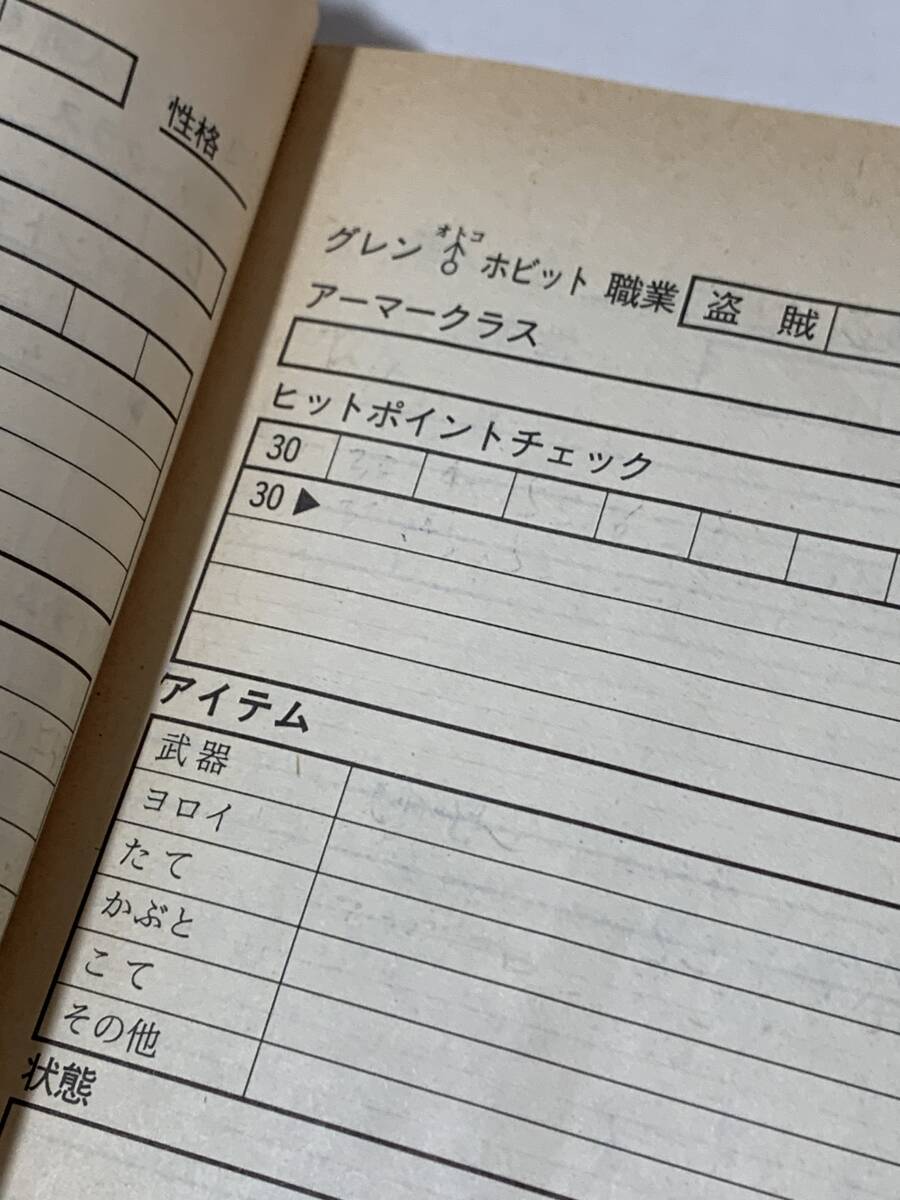 性格
オトコ
グレン ♂ ホビット 職業 盗賊
アーマークラス
ヒットポイントチェック
30
30▶
アイテム
武器
ヨロイ
たて
かぶと
こて
その他
状態